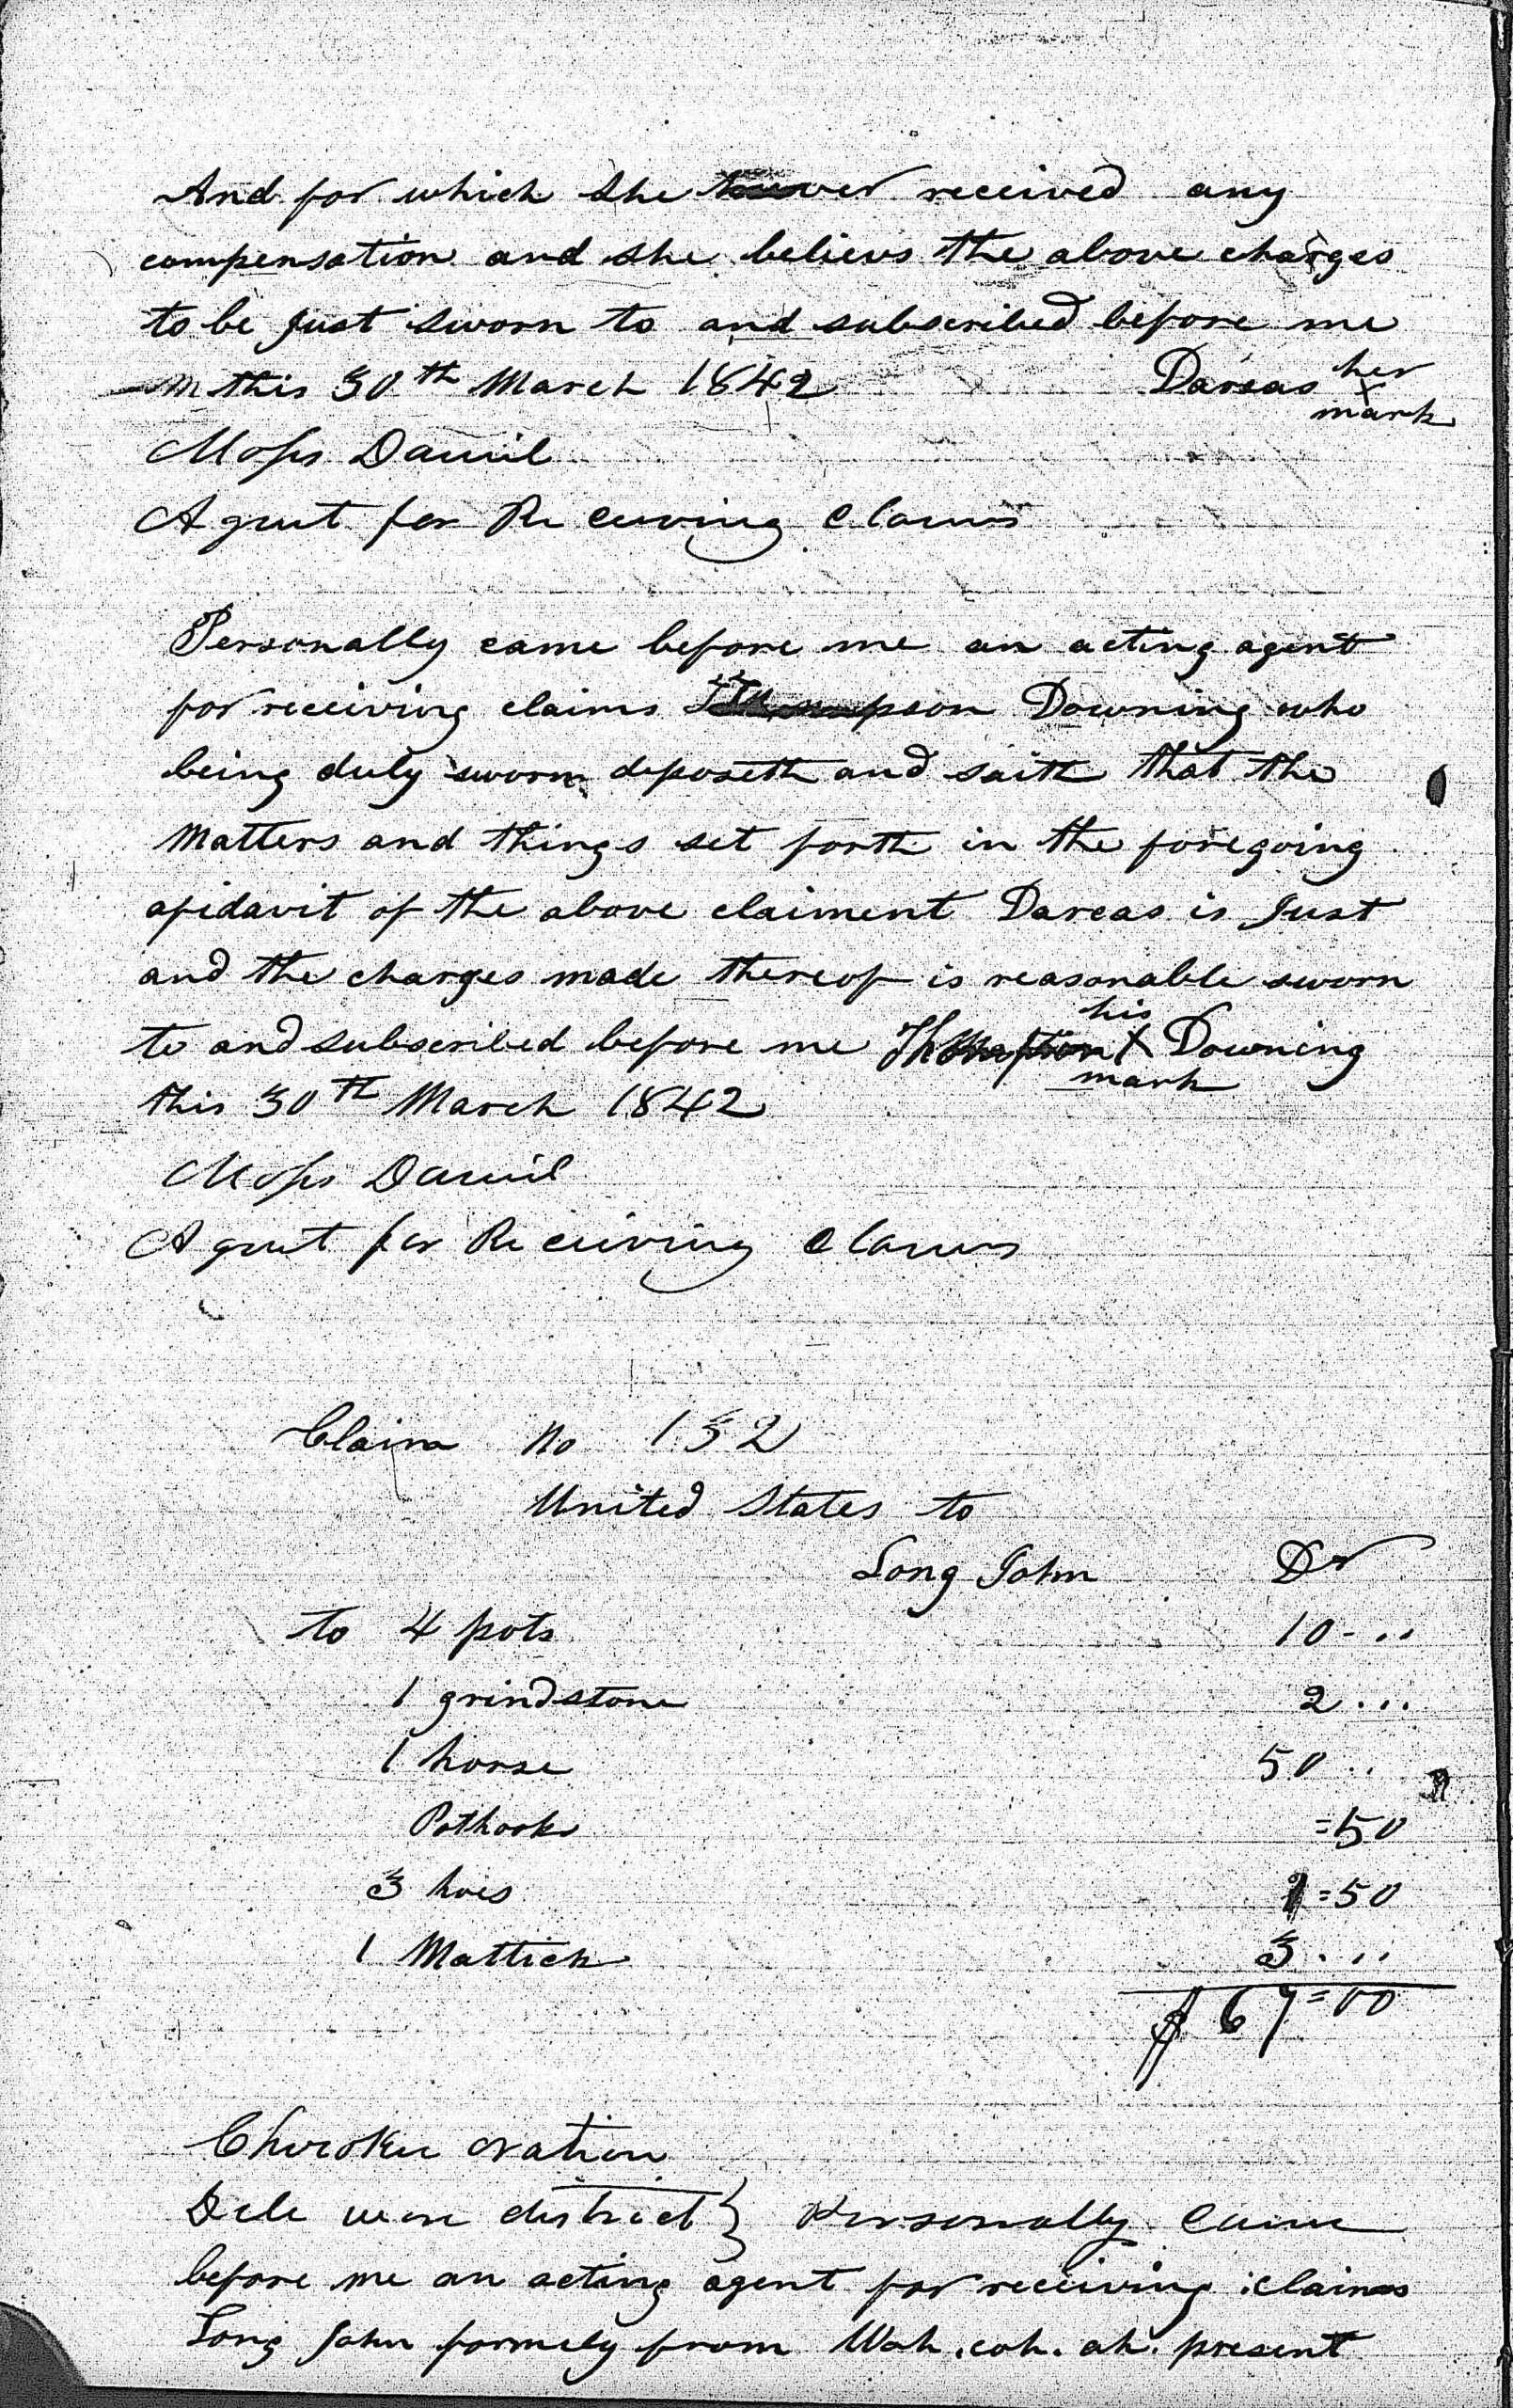 And for which she never received any
compensation and she believs the above charges
to be just sworn to and subscribed before me
this 30th March 1842 Darcas her x mark
Moses Daniel
Agent for Receiving Claims
Personally came before me an acting agent
for receiving claims Thompson Downing who
being duly sworn deposeth and saith that the
Matters and things set forth in the foregoing
afidavit of the above claiment Darcas is just
and the charges made thereof is reasonable sworn
to and subscribed before me Thompson his x mark Downing
this 30th March 1842
Moses Daniel
Agent for Receiving Claims
Claim No 132
United States to
Long John Dr
to 4 pots 10-..
1 grindstone 2...
1 horse 50..
Pothooks =50
3 hoes 1=50
1 Mattick 3...
$67=00
Cherokee Nation
Dele ware district } Personally came
before me an acting agent for receiving claims
Long John formely from Wah.coh.ah. present